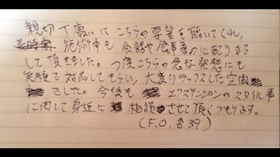 親切丁寧に こちらの要望を聴いてくれ、
施術中も 会話や食事等の心配りまで
して頂きました。つ度こちらの急な発想にも
笑顔で対応してもらい、大変リラックスした空間
でした。今後も エクステンションのスタイル等
に関して身近に 相談させて頂くつもりです。
(F.O. 含 39)